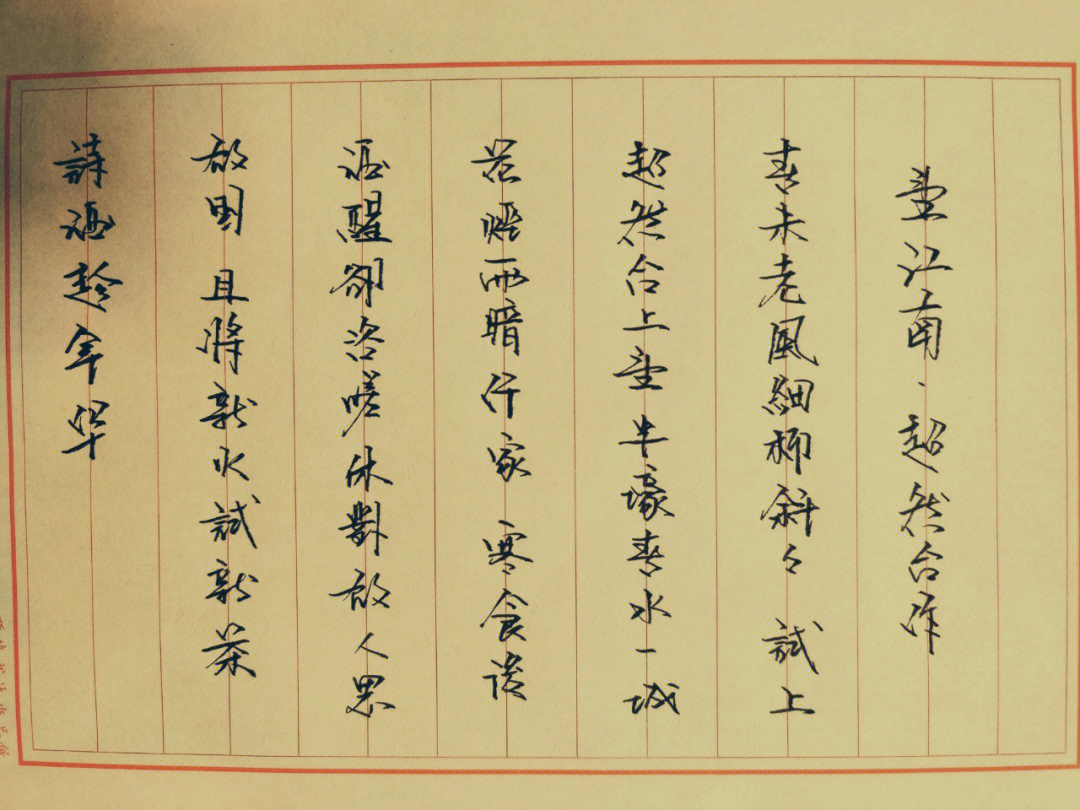 望江南·超然台作
春未老風細柳斜々 試上
超然台上望半壕春水一城
花煙雨暗仟家 寒食後
酒醒卻咨嗟休對故人思
故国 且將新火試新茶
詩酒趁年華